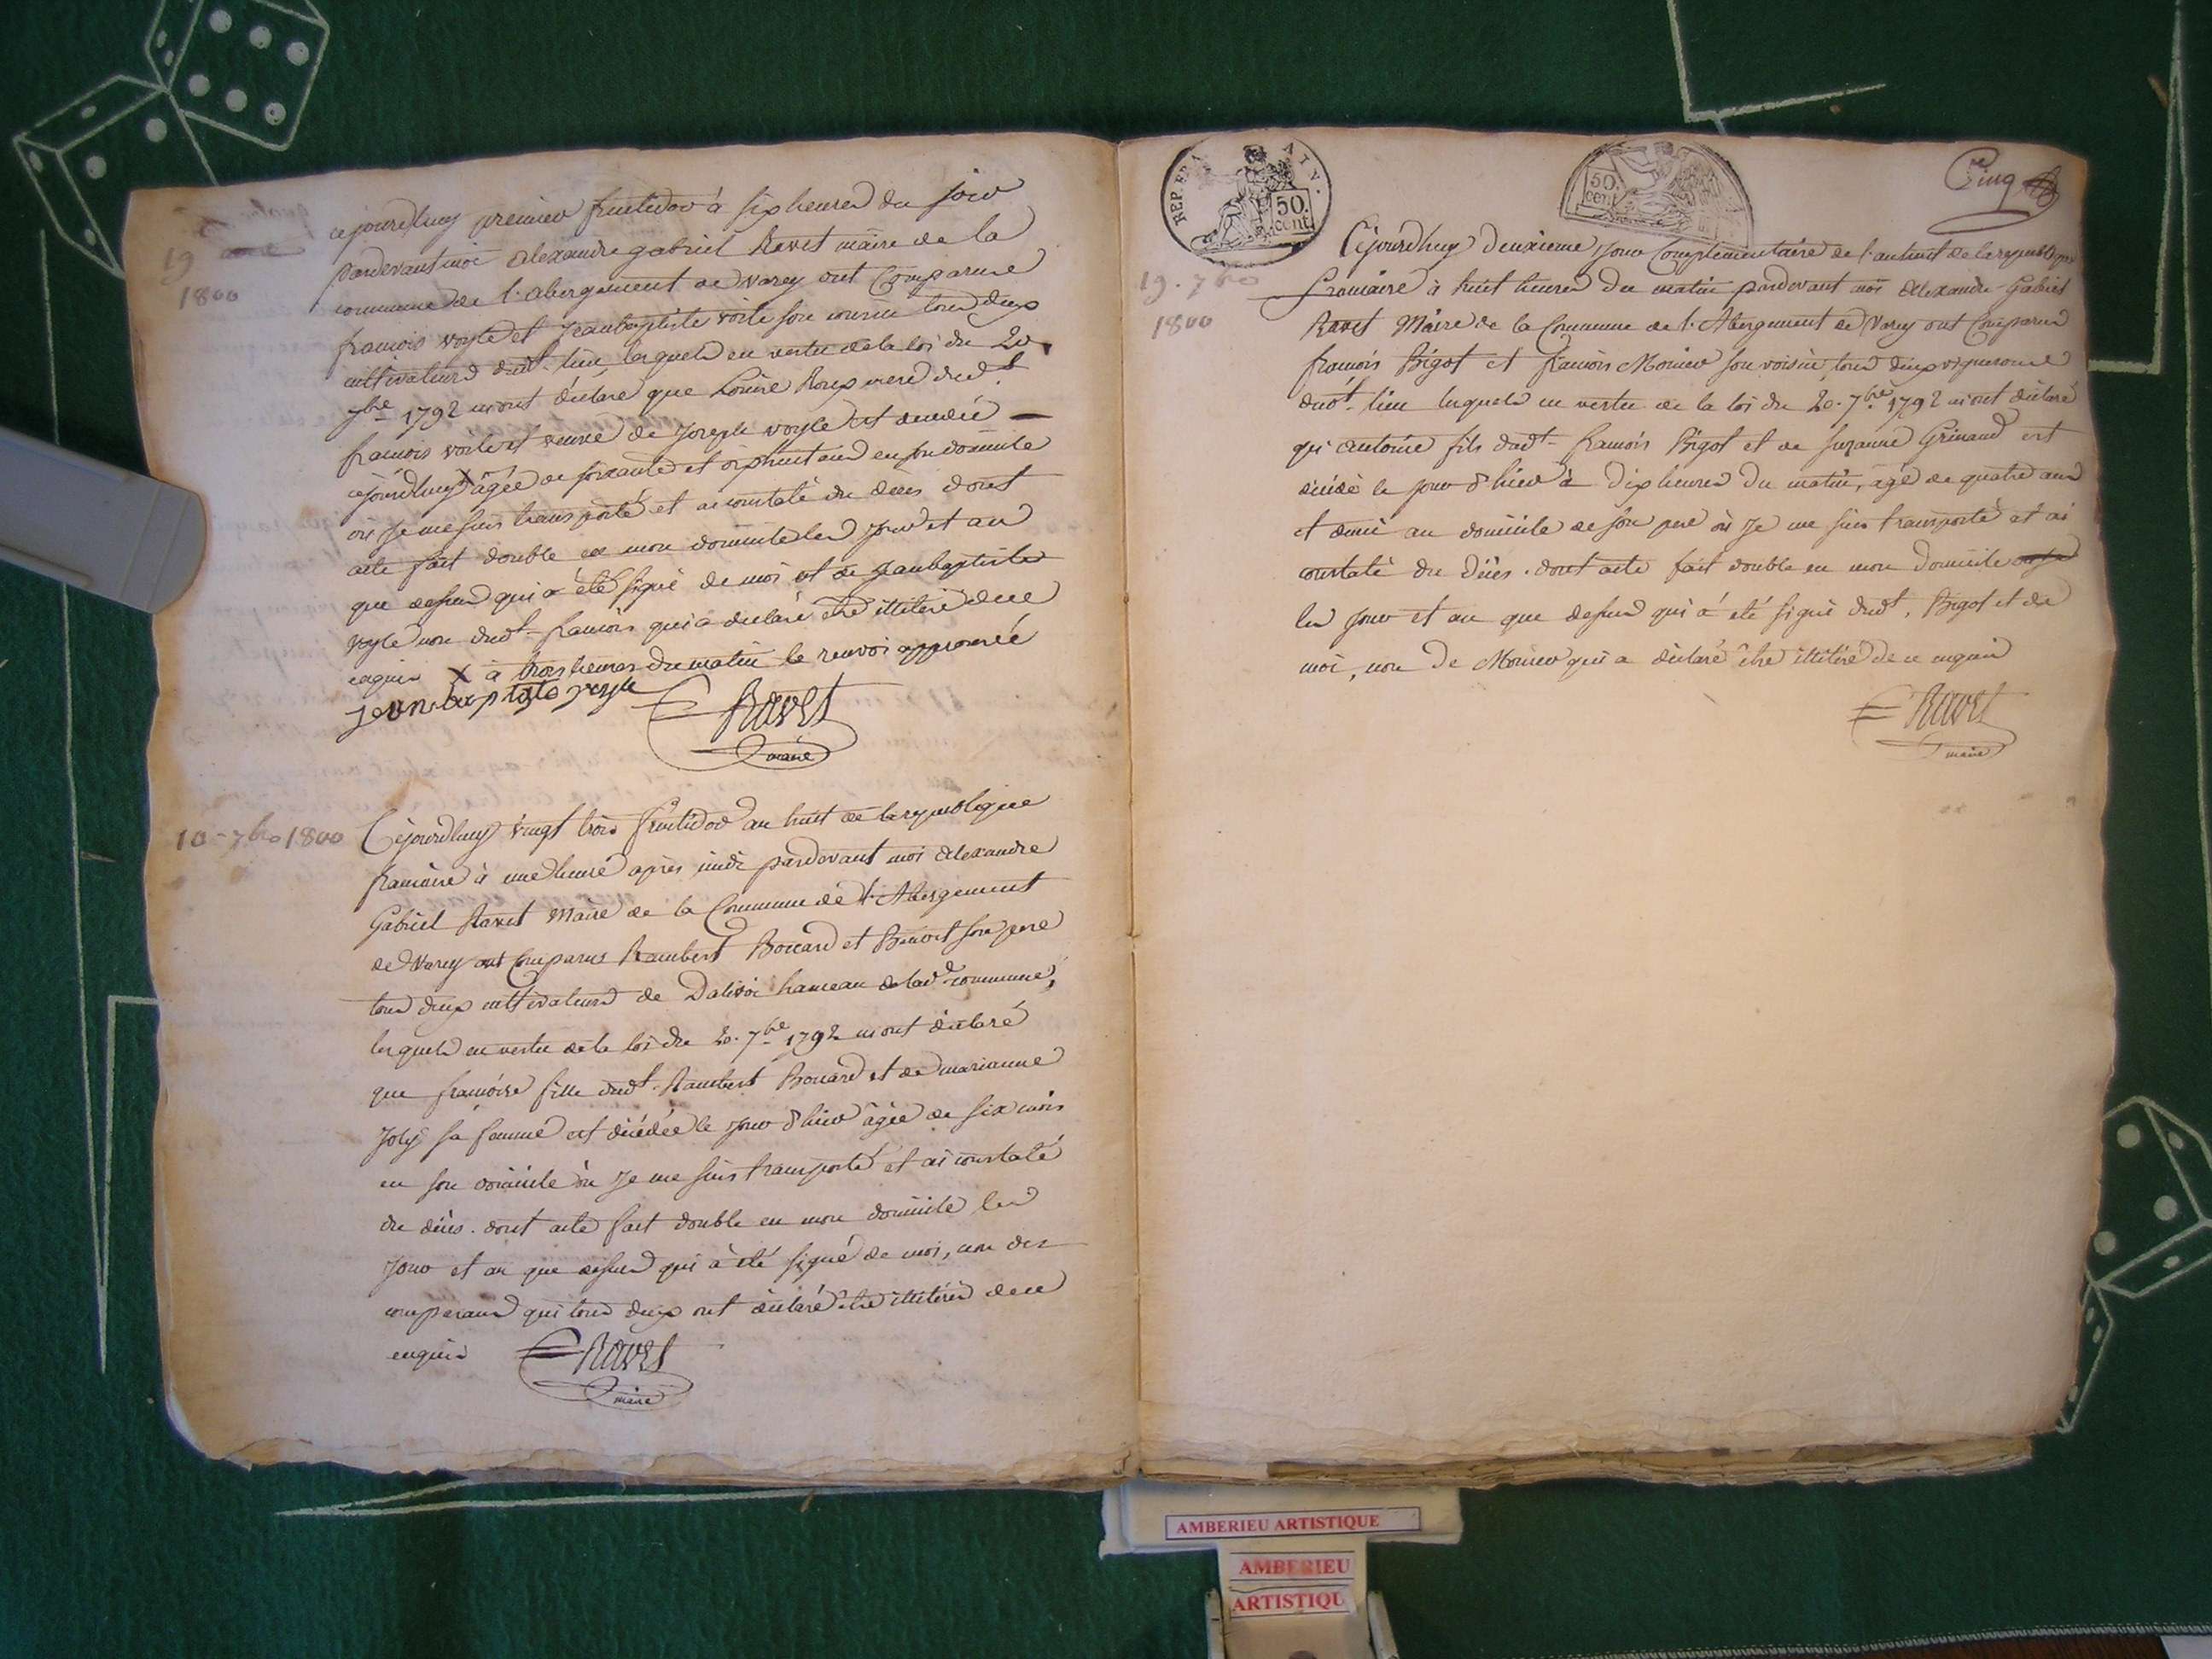 19 août
1800
cejourdhuy premier fructidor à six heures du soir
pardevant moi alexandre gabriel Ravet maire de la
commune de l'abergement de varey ont Comparus
francois voyle et Jeanbaptiste voile son cousin tous deux
cultivateurs dudt lieu, lesquels en vertu de la loi du 20.
7bre 1792 m'ont déclaré que Louise Roux mere dudt
francois voile et veuve de Joseph voyle est decedée
cejourdhuy X âgée de soixante et dixhuit ans en son domicile
où Je me suis transporté et ai constaté du deces dont
acte fait double en mon domicile les Jour et an
que dessus qui a été signé de moi et de Jeanbaptiste
voyle non dudt francois qui a declaré être illiteré de ce
enquis X à trois heures du matin le renvoi approuvé
jean baptiste voyle
Ravet
maire
10 - 7bre 1800
Cejourdhuy vingt trois fructidor an huit de la republique
francaise à une heure après midi pardevant moi Alexandre
Gabriel Ravet Maire de la Commune de l'Abergement
de Varey ont Comparus Rambert Bocard et Benoit son pere
tous deux cultivateurs de Dalivoi hameau de lad.e commune,
lesquels en vertu de la loi du 20. 7bre 1792 m'ont déclaré
que francoise fille dudt. Rambert Bocard et de marianne
Joly sa femme est décédée le jour d'hier âgée de six mois
en son domicile où Je me suis transporté et ai constaté
du décès. dont acte fait double en mon domicile les
Jour et an que dessus qui à été signé de moi, non des
comparans qui tous deux ont déclaré être illiterés de ce
enquis
Ravet
maire
REP. FRA
50.
cent
50.
cent
Cinq
19. 7bre
1800
Cejourdhuy deuxieme Jour Complementaire de l'an huit de la republique
francaise à huit heures du matin pardevant moi Alexandre Gabriel
Ravet Maire de la Commune de l'Abergement de Varey ont Comparus
francois Bigot et francois Monier son voisin, tous deux vignerons
dudt. lieu lesquels en vertu de la loi du 20. 7bre 1792 m'ont déclaré
que antoine fils dudt. francois Bigot et de suzanne Grinand est
décédé le jour d'hier à dix heures du matin, âgé de quatre ans
et demi au domicile de son pere où Je me suis transporté et ai
constaté du décès. dont acte fait double en mon domicile
les jour et an que dessus qui à été signé dudt. Bigot et de
moi, non de Monier qui a déclaré être illiteré de ce enquis
Ravet
maire
AMBERIEU ARTISTIQUE
AMBERIEU
ARTISTIQU